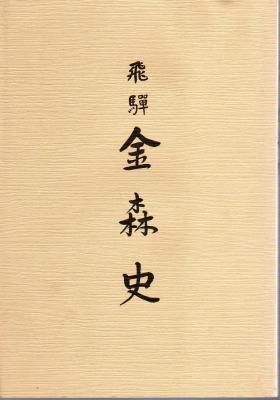 飛騨金森史